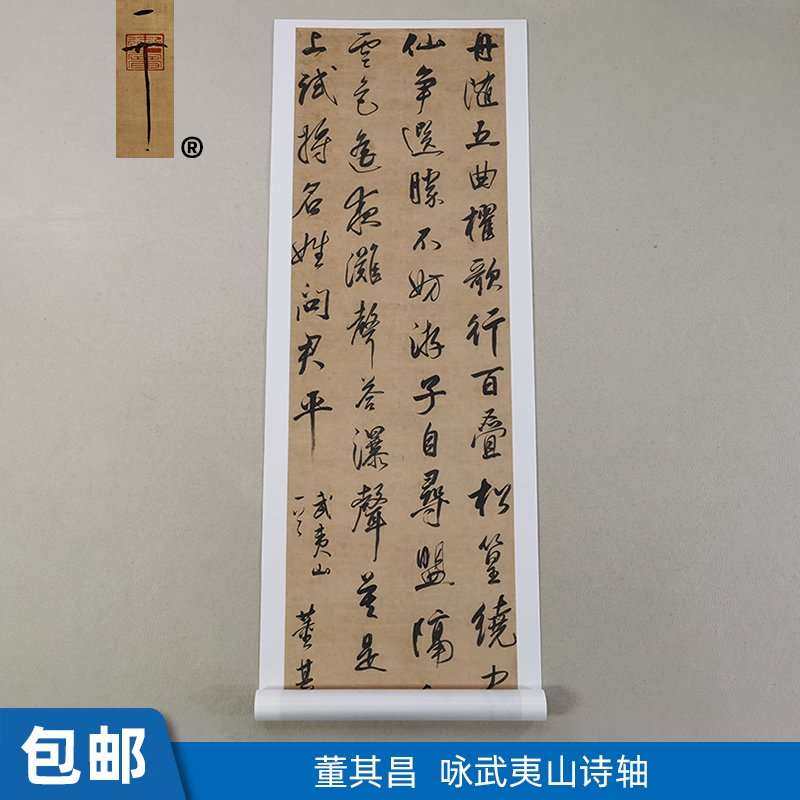 一
®
丹五曲櫂歌行百疊松篁繞
仙争選勝不妨游子自尋盟隔
雲色夜灘聲答瀑聲莫是
上試將名姓問君平
武夷山
董其
包邮
董其昌 咏武夷山诗轴